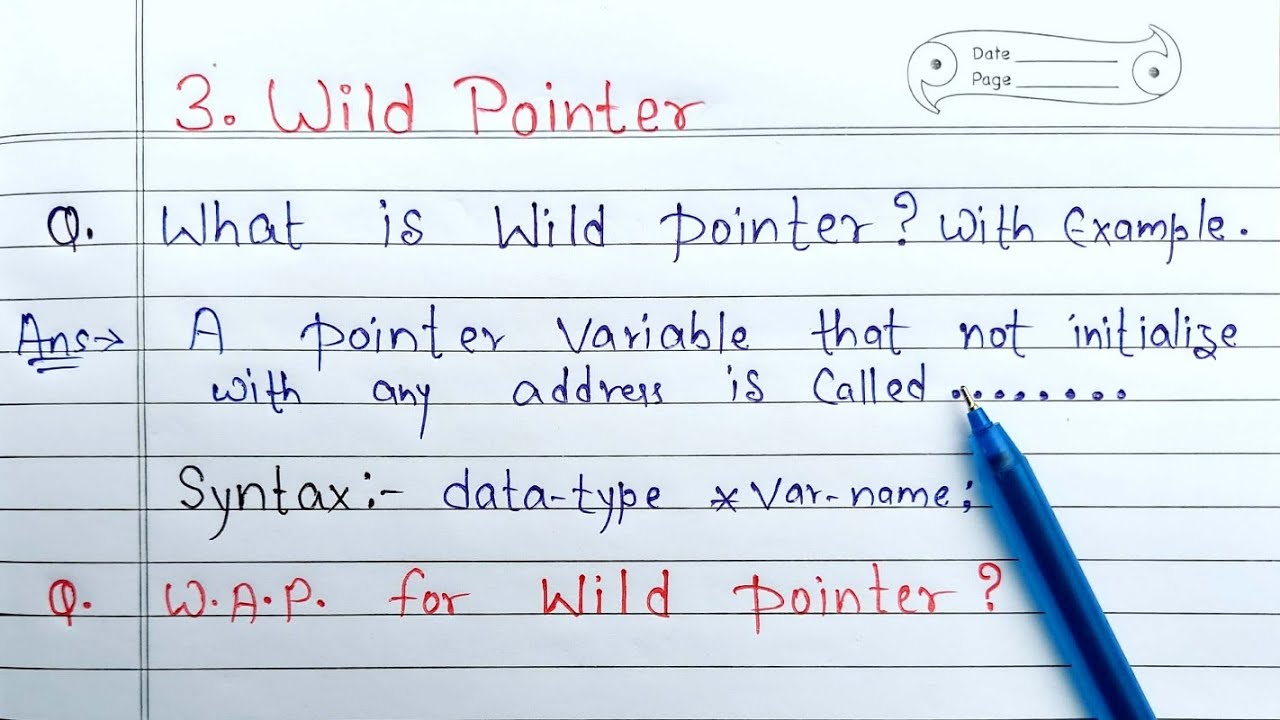 Date
Page
3. Wild Pointer
Q. What is Wild pointer? With Example.
Ans→ A pointer variable that not initialize
with any address is Called ........
Syntax:- data-type *var-name;
Q. W.A.P. for Wild pointer?